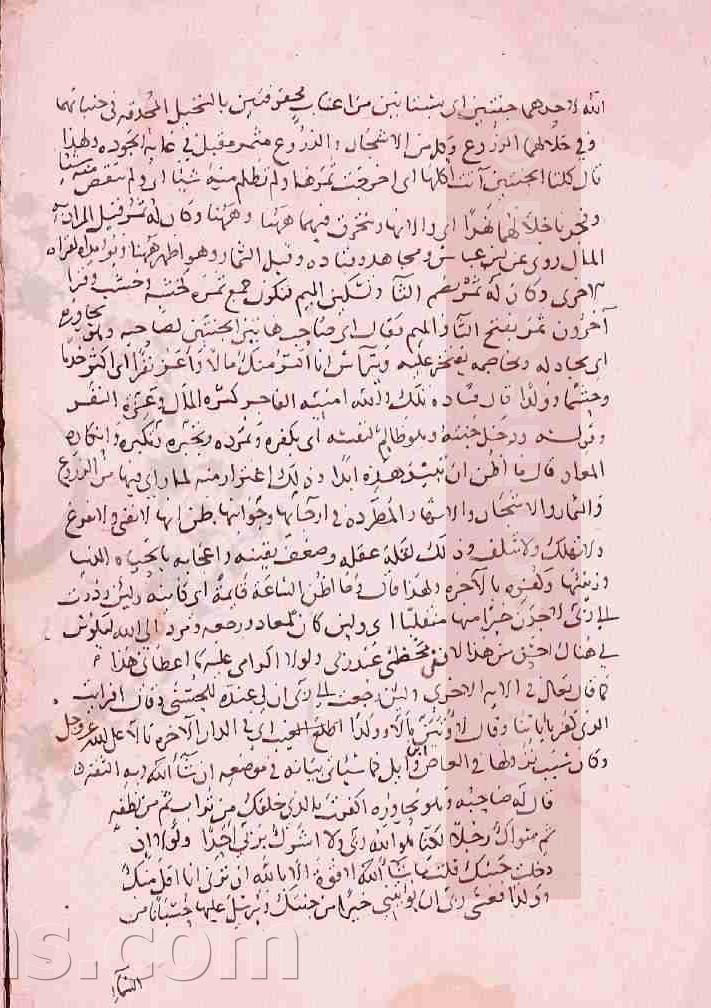 الله لاحدهما جنتين اى بستانين من اعناب محفوفتين بالنخيل المحدقه فى جنباتهما
وفى خلالهما الزروع وكل من الاشجار والزروع مثمر مقبل فى غايه الجوده ولهذا
قال كلتا الجنتين آتت اكلها اى اخرجت ثمرها ولم تظلم منه شيئا اى ولم تنقص منه شيئا
وفجرنا خلالهما نهرا اى والانهار تتخرق فيهما ههنا وههنا وكان له ثمر قيل المراد به
المال روى عن ابن عباس ومجاهد وقتاده وقيل الثمار وهو اظهر ههنا ويؤيده القراه
الاخرى وكان له ثمر بضم الثا وتسكين الميم فيكون جمع ثمره كخشبه وخشب وقرا
آخرون ثمر بفتح الثا والميم فقال اى صاحب هاتين الجنتين لصاحبه وهو يحاوره
اى يجادله ويخاصمه يفتخر عليه ويتراس انا اكثر منك مالا واعز نفرا اى اكثر خدما
وحشما وولدا قال قتاده تلك والله امنيه الفاجر كثره المال وعزه النفر
وقوله ودخل جنته وهو ظالم لنفسه اى بكفره وتمرده وتجبره وتكبره وانكاره
المعاد قال ما اظن ان تبيد هذه ابدا وذلك اغترار منه لما راى فيها من الزروع
والثمار والاشجار والانهار المطرده فى ارجائها وجوانبها ظن انها لا تفنى ولا تفرغ
ولا تهلك ولا تتلف وذلك لقله عقله وضعف يقينه واعجابه بالحياه الدنيا
وزينتها وكفره بالآخره ولهذا قال وما اظن الساعه قائمه اى كائنه ولئن رددت
الى ربى لاجدن خيرا منها منقلبا اى ولئن كان معاد ورجعه ومرد الى الله ليكونن
لى هناك احسن من هذا لانى محظى عند ربى ولولا اكرامى عليه ما اعطانى هذا
كما قال تعالى فى الايه الاخرى ولئن رجعت الى ربى ان لى عنده للحسنى وقال افرايت
الذى كفر باياتنا وقال لاوتين مالا وولدا اطلع الغيب اى فى الدار الآخره تالا على الله عز وجل
وكان سبب نزولها فى العاص بن وائل كما سياتى بيانه فى موضعه ان شآ الله وبه الثقه
قال له صاحبه وهو يحاوره اكفرت بالذى خلقك من تراب ثم من نطفه
ثم سواك رجلا لكنا هو الله ربى ولا اشرك بربى احدا ولولا اذ
دخلت جنتك قلت ما شآ الله لا قوه الا بالله ان ترنى انا اقل منك
وولدا فعسى ربى ان يؤتينى خيرا من جنتك ويرسل عليها حسبانا من
السمآء
ns.com